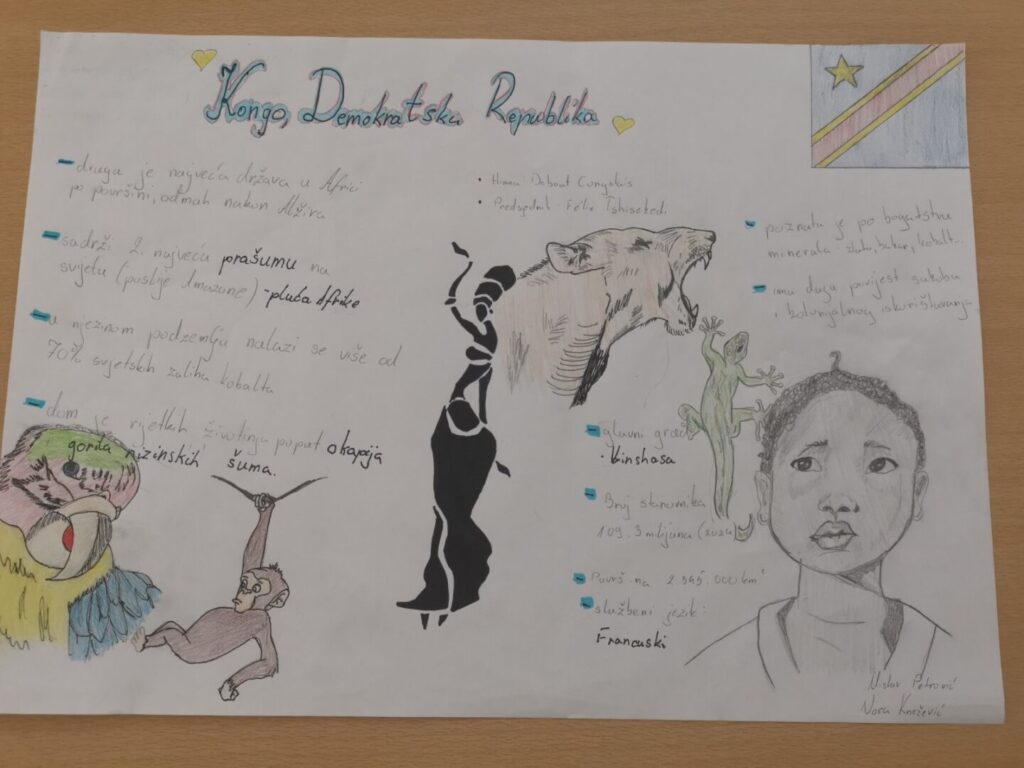 Kongo, Demokratska Republika
- druga je najveća država u Africi
po površini, odmah nakon Alžira
- sadrži 2. najveću prašumu na
svijetu (poslije Amazone) - pluća Afrike
- u njezinom podzemlju nalazi se više od
70% svjetskih zaliha kobalta
- dom je rijetkih životinja poput okapija
gorila nizinskih šuma.
• Himna: Debout Congolais
• Predsjednik - Félix Tshisekedi
- poznata je po bogatstvu
minerala: zlato, bakar, kobalt...
- ima dugu povijest sukoba
i kolonijalnog iskorištavanja
- glavni grad
• Kinshasa
- Broj stanovnika
109.3 milijuna (2024)
- Površina 2.345.000 km²
- službeni jezik:
Francuski
Petrović
Nora Knežević